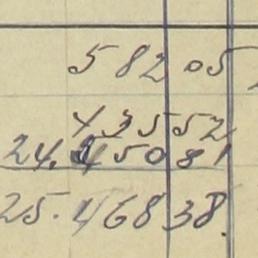 5 82 05
4 35 52
24. 45081
25. 468 38.